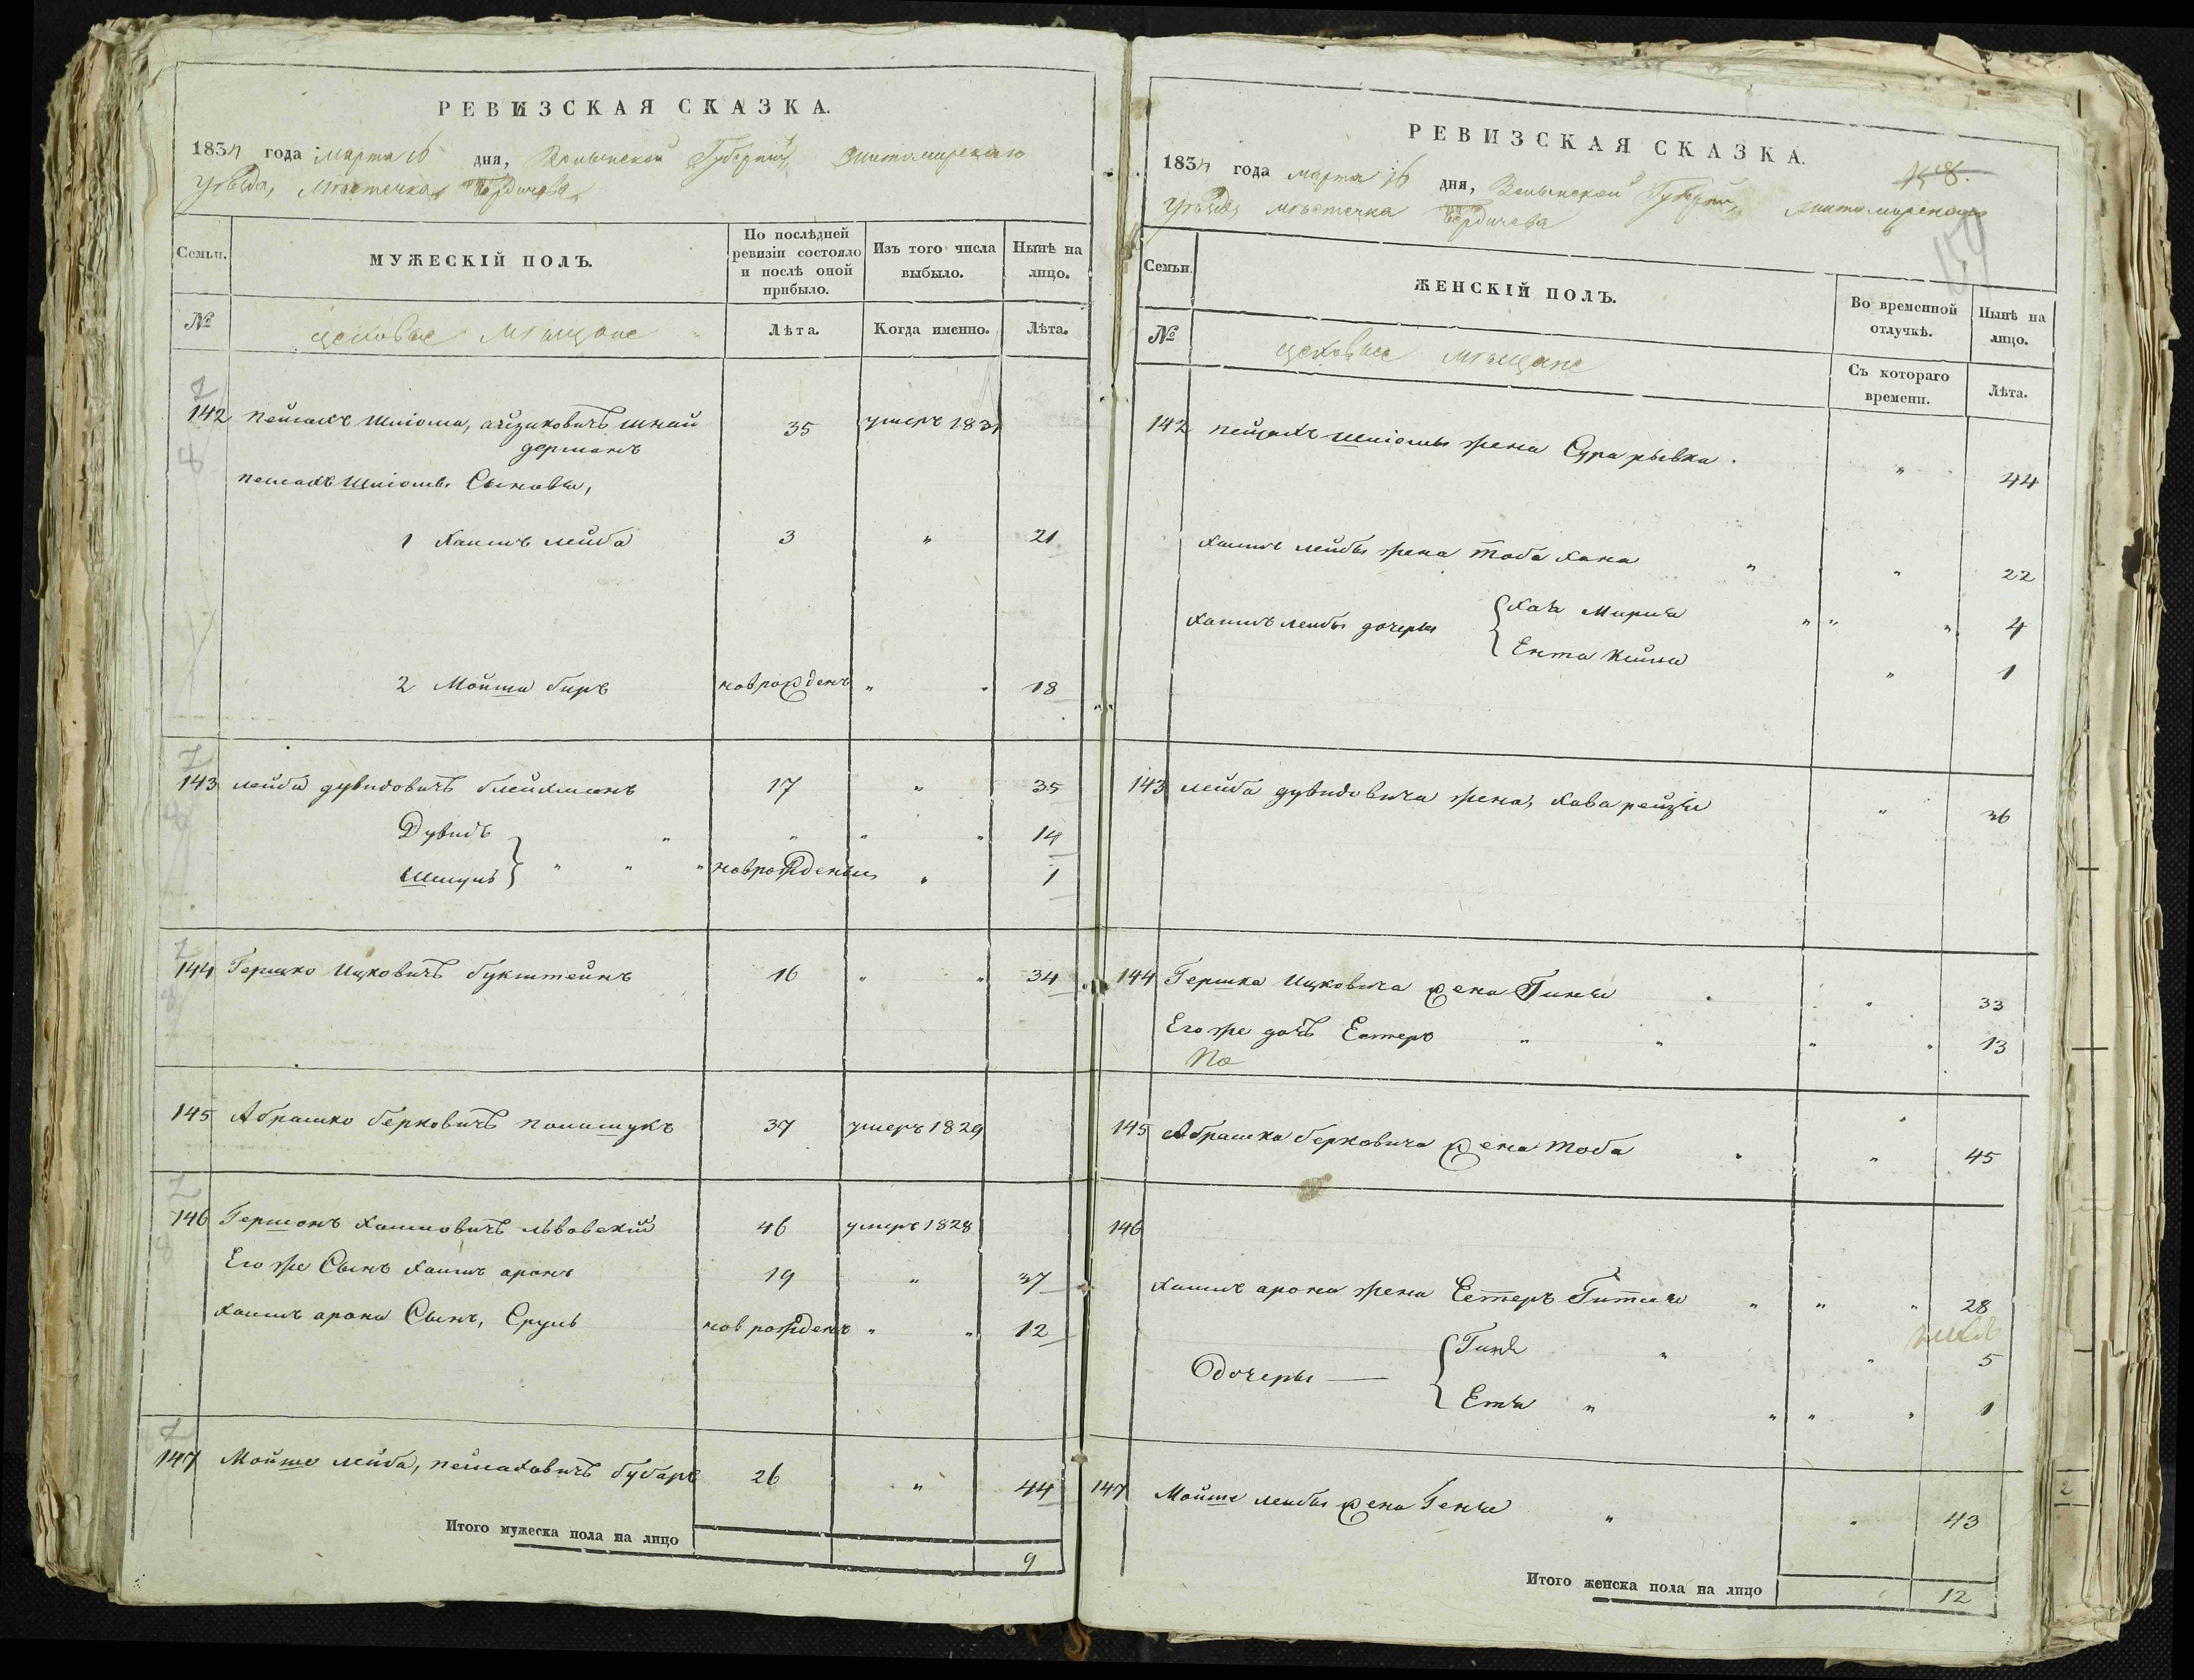 РЕВИЗСКАЯ СКАЗКА.
1834 года марта 16 дня, Волынской Губерніи Житомирскаго
Уѣзда, Мѣстечка Бердичева
Семьи.
МУЖЕСКІЙ ПОЛЪ.
По послѣдней ревизіи состояло и послѣ оной прибыло.
Изъ того числа выбыло.
Нынѣ на лицо.
№
цеховые мѣщане
Лѣта.
Когда именно.
Лѣта.
142 пейсахъ шлiома, айзиковичъ шнай 35 умеръ 1831
дерманъ
пейсахъ шлiомы Сыновья,
1 хаимъ лейба 3 " 21
2 Мойша беръ новрожденъ " " 18
143 лейба дувидовичъ блейхманъ 17 " 35
Дувидъ " " " " 14
Шмулъ " " " новрожденны " 1
144 Гершко Ицковичъ букштейнъ 16 " " 34
145 Абрашко берковичъ полищукъ 37 умеръ 1829
146 Гершонъ хаимовичъ львовскій 46 умеръ 1828
Его же Сынъ хаимъ аронъ 19 " 37
хаимъ арона Сынъ, Сруль новрожденъ " " 12
147 Мойше лейба, пейсаховичъ бубаръ 26 " 44
Итого мужеска пола на лицо 9
РЕВИЗСКАЯ СКАЗКА.
158.
1834 года марта 16 дня, Волынской Губерніи, Житомирскаго
Уѣзда мѣстечка Бердичева
159
Семьи.
ЖЕНСКІЙ ПОЛЪ.
Во временной отлучкѣ.
Нынѣ на лицо.
№
цеховые мѣщане
Съ котораго времени.
Лѣта.
142 пейсахъ шлiомы жена Сура рывка " 44
хаимъ лейбы жена тоба хана " " 22
хаимъ лейбы дочеры хая Мирля " " " 4
Ента Кейля " 1
143 лейба дувидовича жена, хава рейзя " 36
144 Гершка Ицковича жена Гиня " 33
Его же дочь Естеръ " " " " 13
145 Абрашка берковича жена тоба " " 45
146
хаимъ арона жена Естеръ Гитля " " " 28
Дочеры — Гиня " " 5
Етя " " " " 1
147 Мойше лейбы жена Геня " " 43
Итого женска пола на лицо 12
2